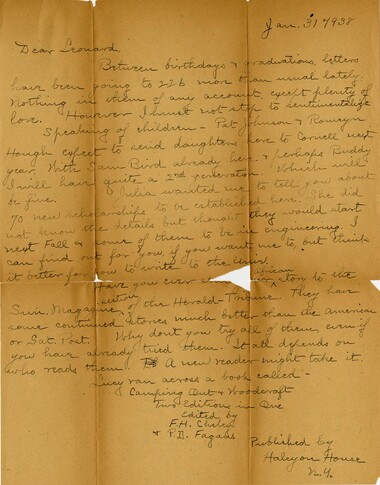 Jan. 31 1938
Dear Leonard,
Between birthdays & graduations, letters
have been going to 226 more than usual lately.
Nothing in them of any account, except plenty of
love. However I must not stop to sentimentalize
Speaking of children - Pat Johnson & Romeyn
Hough expect to send daughters here to Cornell next
year. With Sam Bird already here & perhaps Buddy
I will have quite a 2nd generation. Which will
be fine. Julia wanted me to tell you about
70 new scholarships to be established here. She did
not know the details but thought they would start
next Fall & some of them to be in engineering. I
can find out for you, if you want me to, but think
it better for you to write to the Univ.
Have you ever African story to the
Sun. Magazine section of the Herald-Tribune. They have
some continued stories much better than the American
or Sat. Post. Why dont you try all of them, even if
you have already tried them. It all depends on
who reads them. A new reader might take it.
Lucy ran across a book called -
Camping Out & Woodcraft
Two Editions in One
edited by
F.H. Cheley
& P.D. Fagans
Published by
Halcyon House
N.Y.